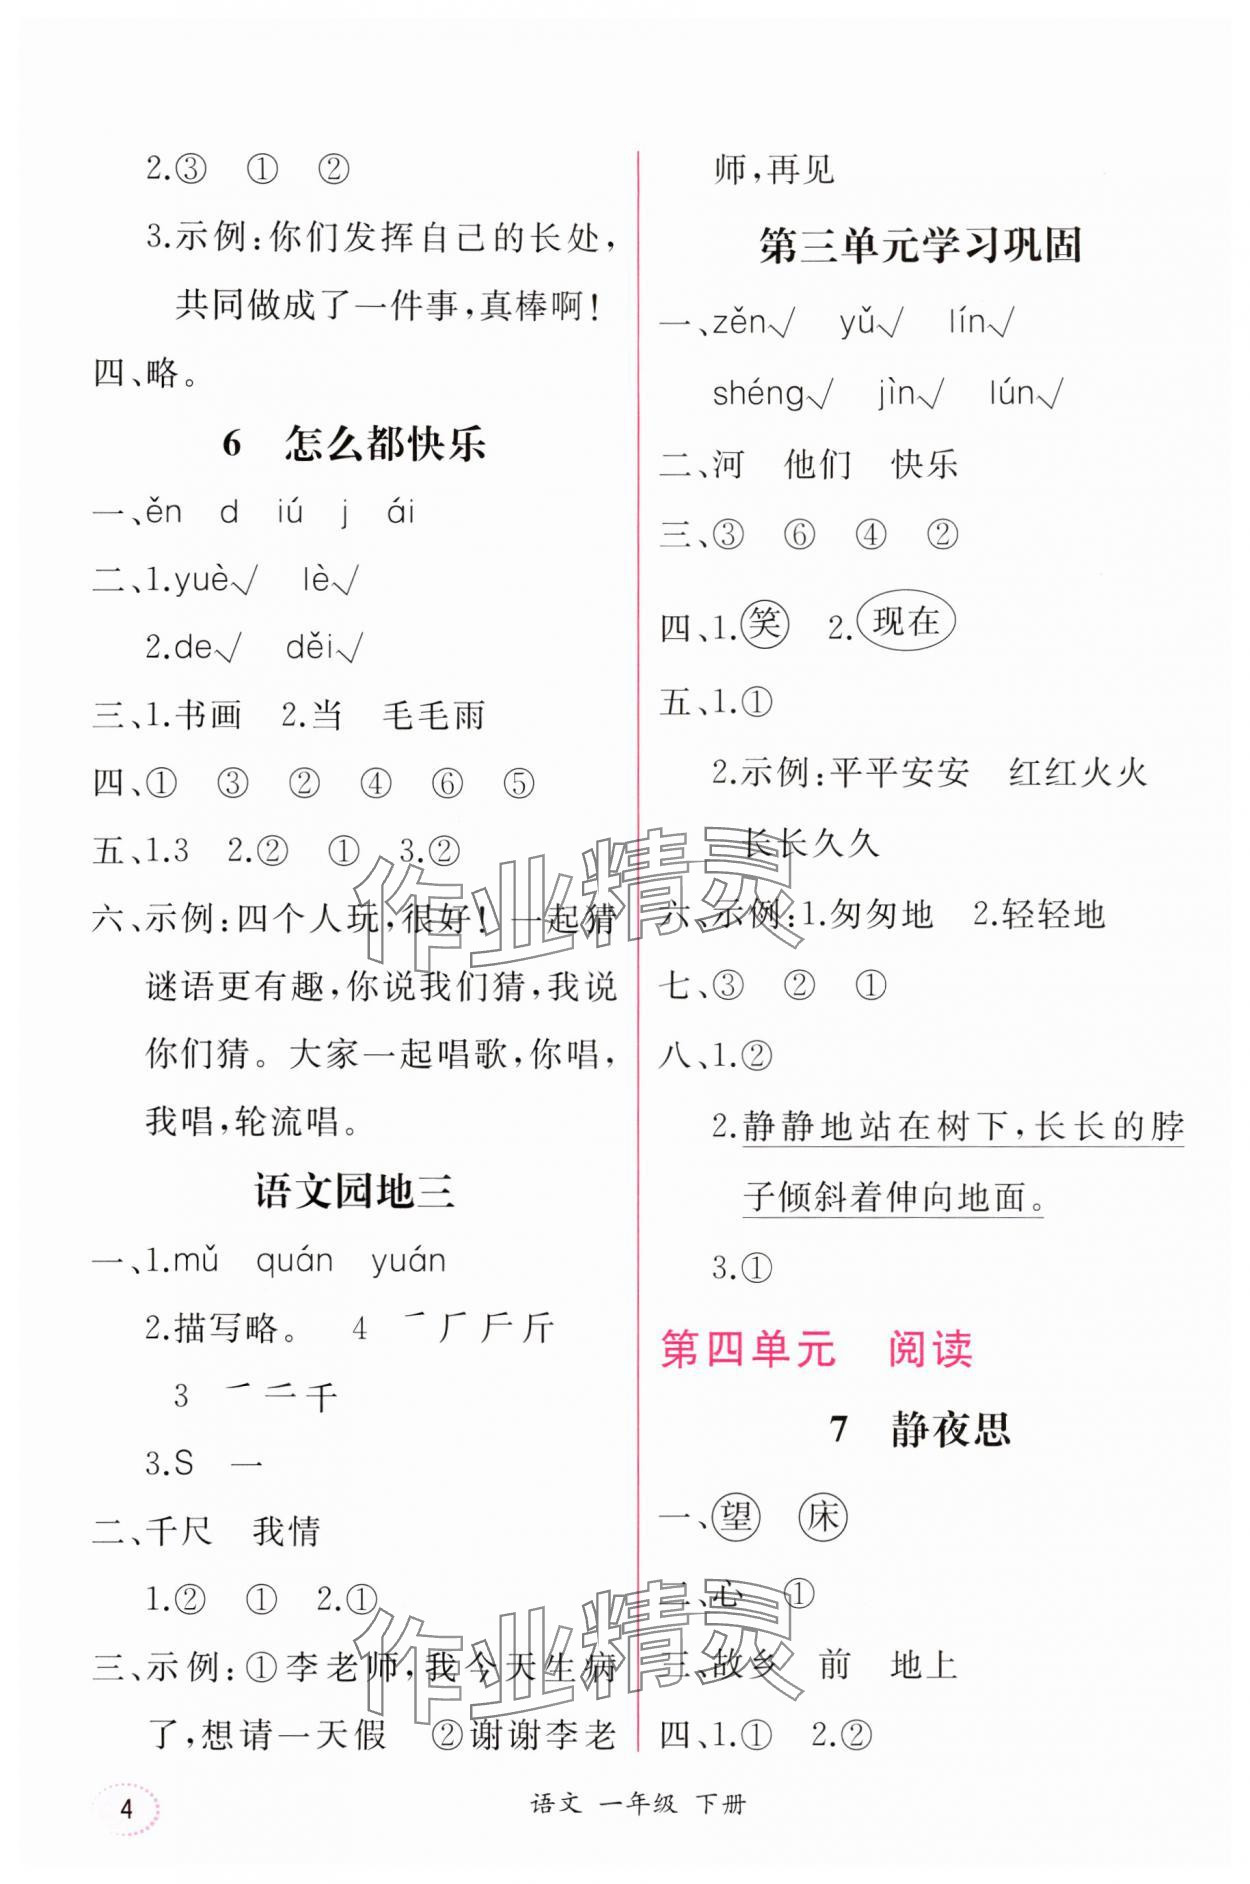 2.③ ① ②
3.示例:你们发挥自己的长处,
共同做成了一件事,真棒啊!
四、略。
6 怎么都快乐
一、ěn d iú j ái
二、1.yuè√ lè√
2.de√ děi√
三、1.书画 2.当 毛毛雨
四、① ③ ② ④ ⑥ ⑤
五、1.3 2.② ① 3.②
六、示例:四个人玩,很好!一起猜
谜语更有趣,你说我们猜,我说
你们猜。大家一起唱歌,你唱,
我唱,轮流唱。
语文园地三
一、1.mǔ quán yuán
2.描写略。 4 ㇀ 厂 斤 斤
3 ㇀ 二 千
3.S 一
二、千尺 我情
1.② ① 2.①
三、示例:①李老师,我今天生病
了,想请一天假 ②谢谢李老
师,再见
第三单元学习巩固
一、zěn√ yǔ√ lín√
shéng√ jìn√ lún√
二、河 他们 快乐
三、③ ⑥ ④ ②
四、1.笑 2.现在
五、1.①
2.示例:平平安安 红红火火
长长久久
六、示例:1.匆匆地 2.轻轻地
七、③ ② ①
八、1.②
2.静静地站在树下,长长的脖
子倾斜着伸向地面。
3.①
第四单元 阅读
7 静夜思
一、望 床
二、心 ①
三、故乡 前 地上
四、1.① 2.②
作业精灵
作业精灵
4
语文 一年级 下册